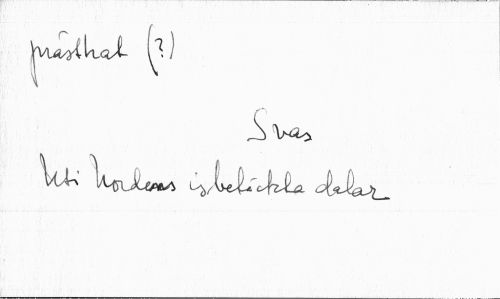 prästhat (?)
Svas
Uti Nordens isbetäckta dalar